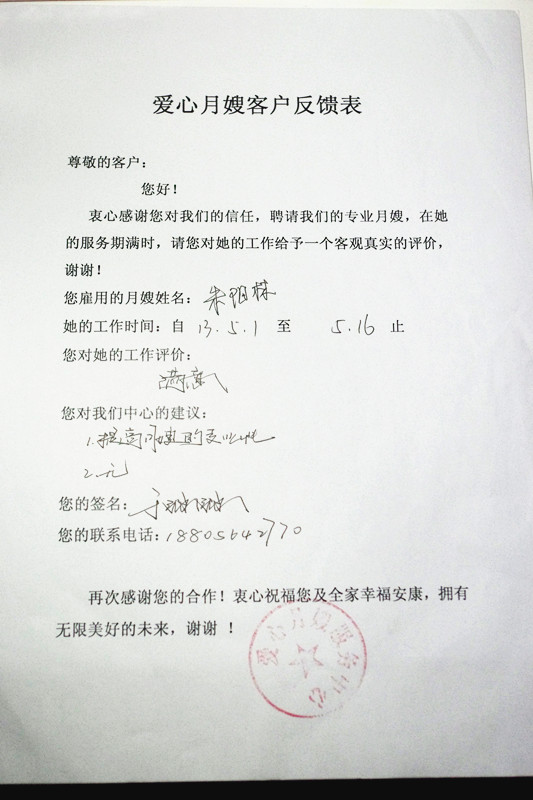 爱心月嫂客户反馈表
尊敬的客户：
您好！
衷心感谢您对我们的信任，聘请我们的专业月嫂，在她
的服务期满时，请您对她的工作给予一个客观真实的评价，
谢谢！
您雇用的月嫂姓名：朱明林
她的工作时间：自 13.5.1 至 5.16 止
您对她的工作评价：
满意
您对我们中心的建议：
1.提高月嫂的专业性
2.无
您的签名：
您的联系电话：18805642770
再次感谢您的合作！衷心祝福您及全家幸福安康，拥有
无限美好的未来，谢谢 ！
爱心月嫂服务中心